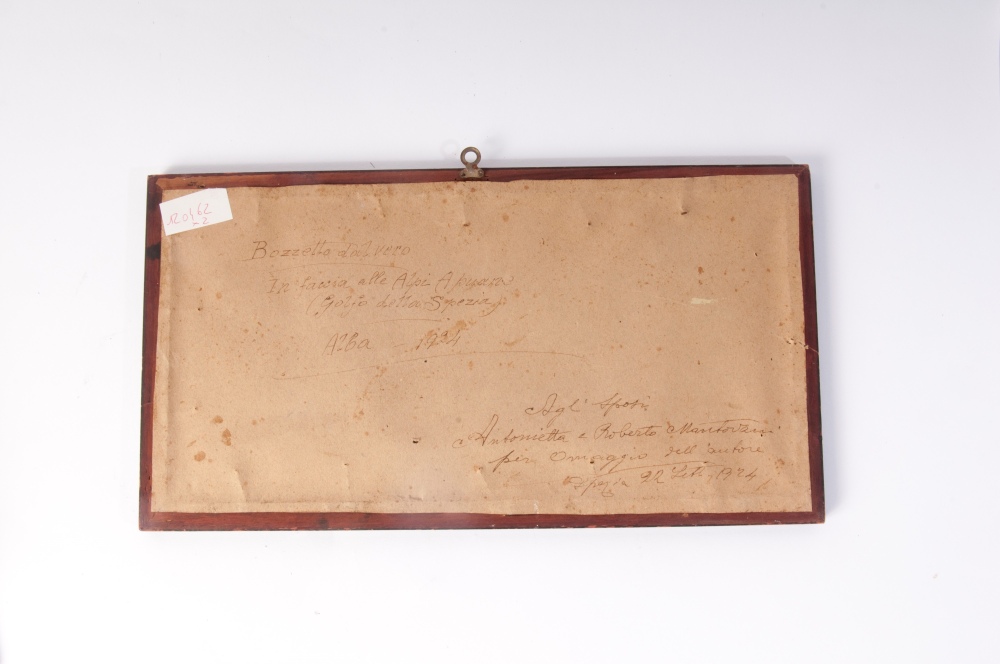 120462
-2
Bozzetto dal vero
In faccia alle Alpi Apuane
(Golfo della Spezia)
Alba - 1924
Agli Sposi
Antonietta e Roberto Mantovani
per omaggio dell'autore
Spezia 22 Sett. 1924